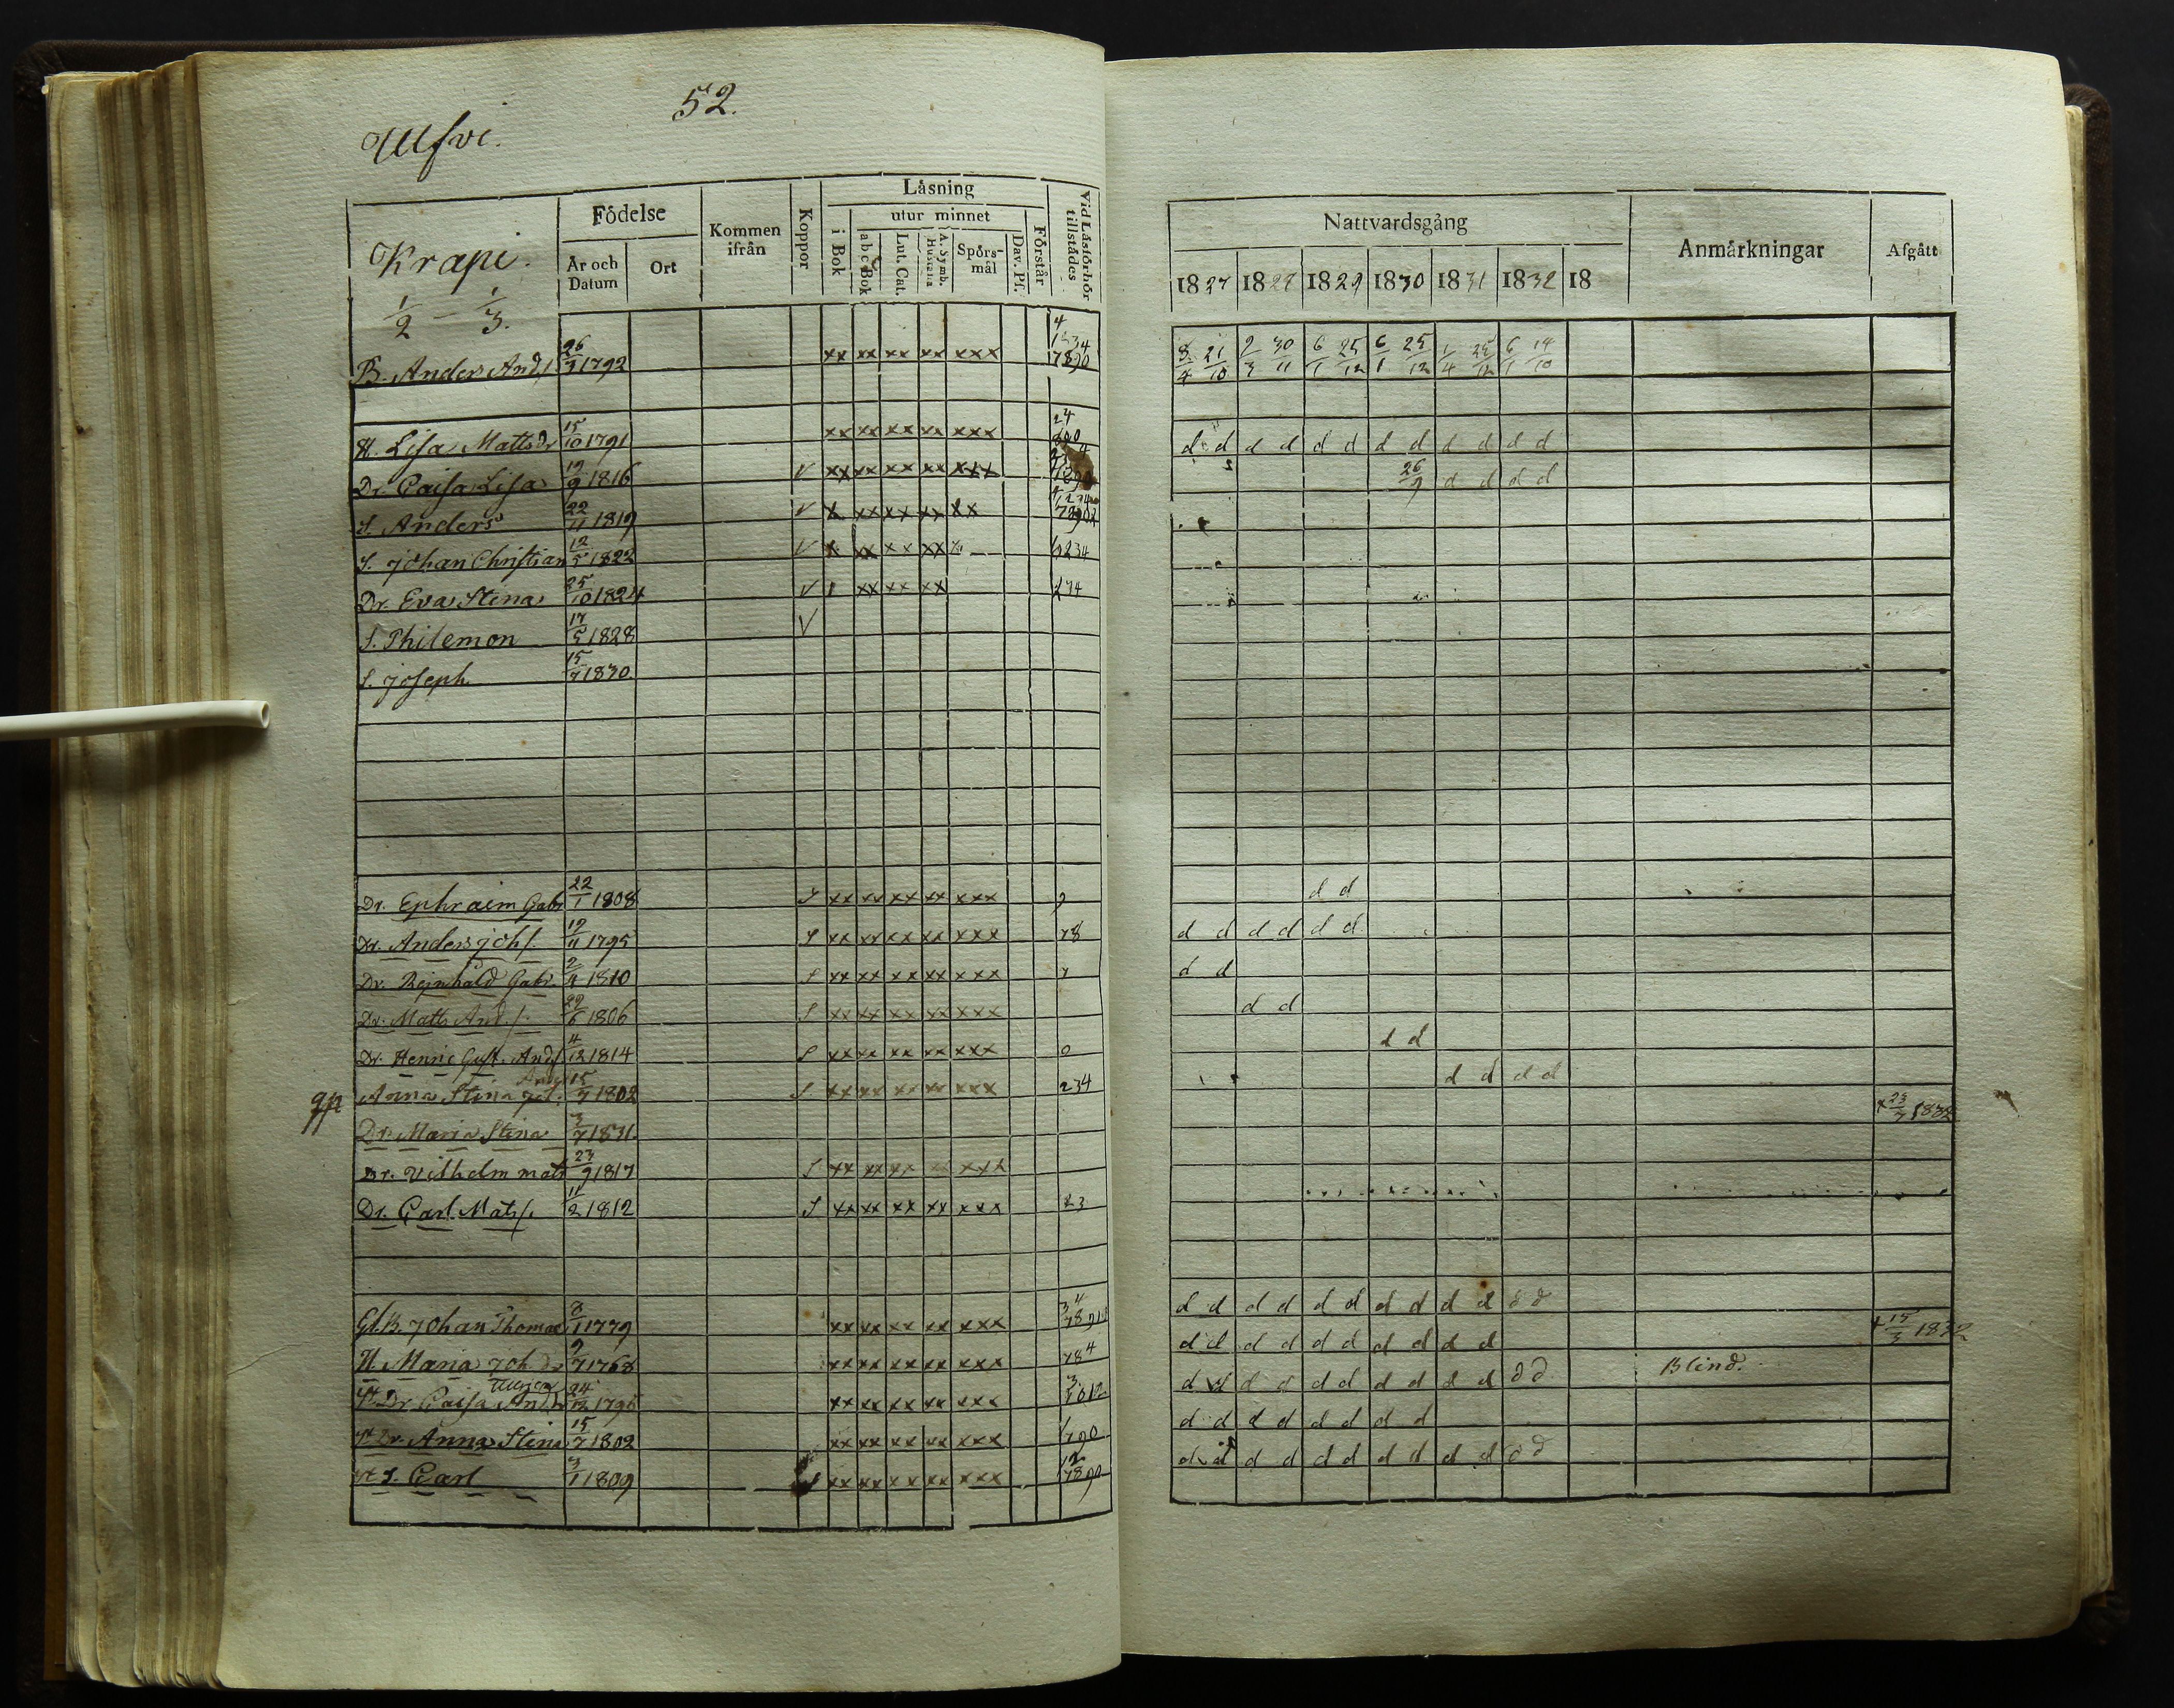 52.
Ulfvi.
Krapi.
1/2 - 1/3.
Födelse
År och Datum
Ort
Kommen ifrån
Koppor
Läsning
i Bok
utur minnet
a b c Bok
Lut. Cat.
A. Symb. Hustafla
Spörsmål
Dav. Ps.
Förstår
Vid Läsförhör tillstädes
B. Anders Ands. 1792 xx xx xx xx xxx
H. Lisa Mattsdr 15/10 1791 xx xx xx xx xxx
Dr. Caisa Lisa 19/9 1816 V xx xx xx xx xxx
S. Anders 22/11 1819 V x xx xx xx xx
S. Johan Christian 12/5 1822 V x xx xx xx
Dr. Eva Stina 25/10 1824 V xx xx xx
S. Philemon 17/5 1828 V
S. Joseph. 15/7 1830.
Dr. Ephraim Gabr 22/1 1808 S xx xx xx xx xxx 9
Dr. Anders Joh s. 19/11 1795 S xx xx xx xx xxx 78
Dr. Reinhold Gabr. 2/4 1810 S xx xx xx xx xxx 7
Dr. Matts And. s. 29/6 1806 S xx xx xx xx xxx
Dr. Henric Gust. Ands 4/12 1814 S xx xx xx xx xxx 0
Anna Stina 15/7 1802 S. xx xx xx xx xxx 234
Dr. Maria Stina 3/7 1831.
Dr. Vilhelm mats 23/9 1817 S xx xx xx xx xxx
Dr. Carl Mats s. 11/2 1812 S xx xx xx xx xxx 23
Gl. B. Johan Thomas 8/1 1779 xx xx xx xx xxx
H. Maria Joh. dr 9/7 1768 xx xx xx xx xxx 784
Dr Caisa Andr 24/12 1796 xx xx xx xx xxx
Dr. Anna Stina 15/7 1802 xx xx xx xx xxx
S. Carl 3/1 1809 S xx xx xx xx xxx
Nattvardsgång
Anmärkningar
Afgått
1827 1828 1829 1830 1831 1832 18
8/4 21/10 2/3 30/11 6/1 25/12 6/1 25/12 1/4 25/12 6/1 14/10
d d d d d d d d d d d d
26/9 d d d d
d d
d d d d d d
d d
d d
d d
d d d d
+ 23/7 1832
d d d d d d d d d d d d
d d d d d d d d d d + 15/3 1832
d d d d d d d d d d d d Blind.
d d d d d d d d
d d d d d d d d d d d d